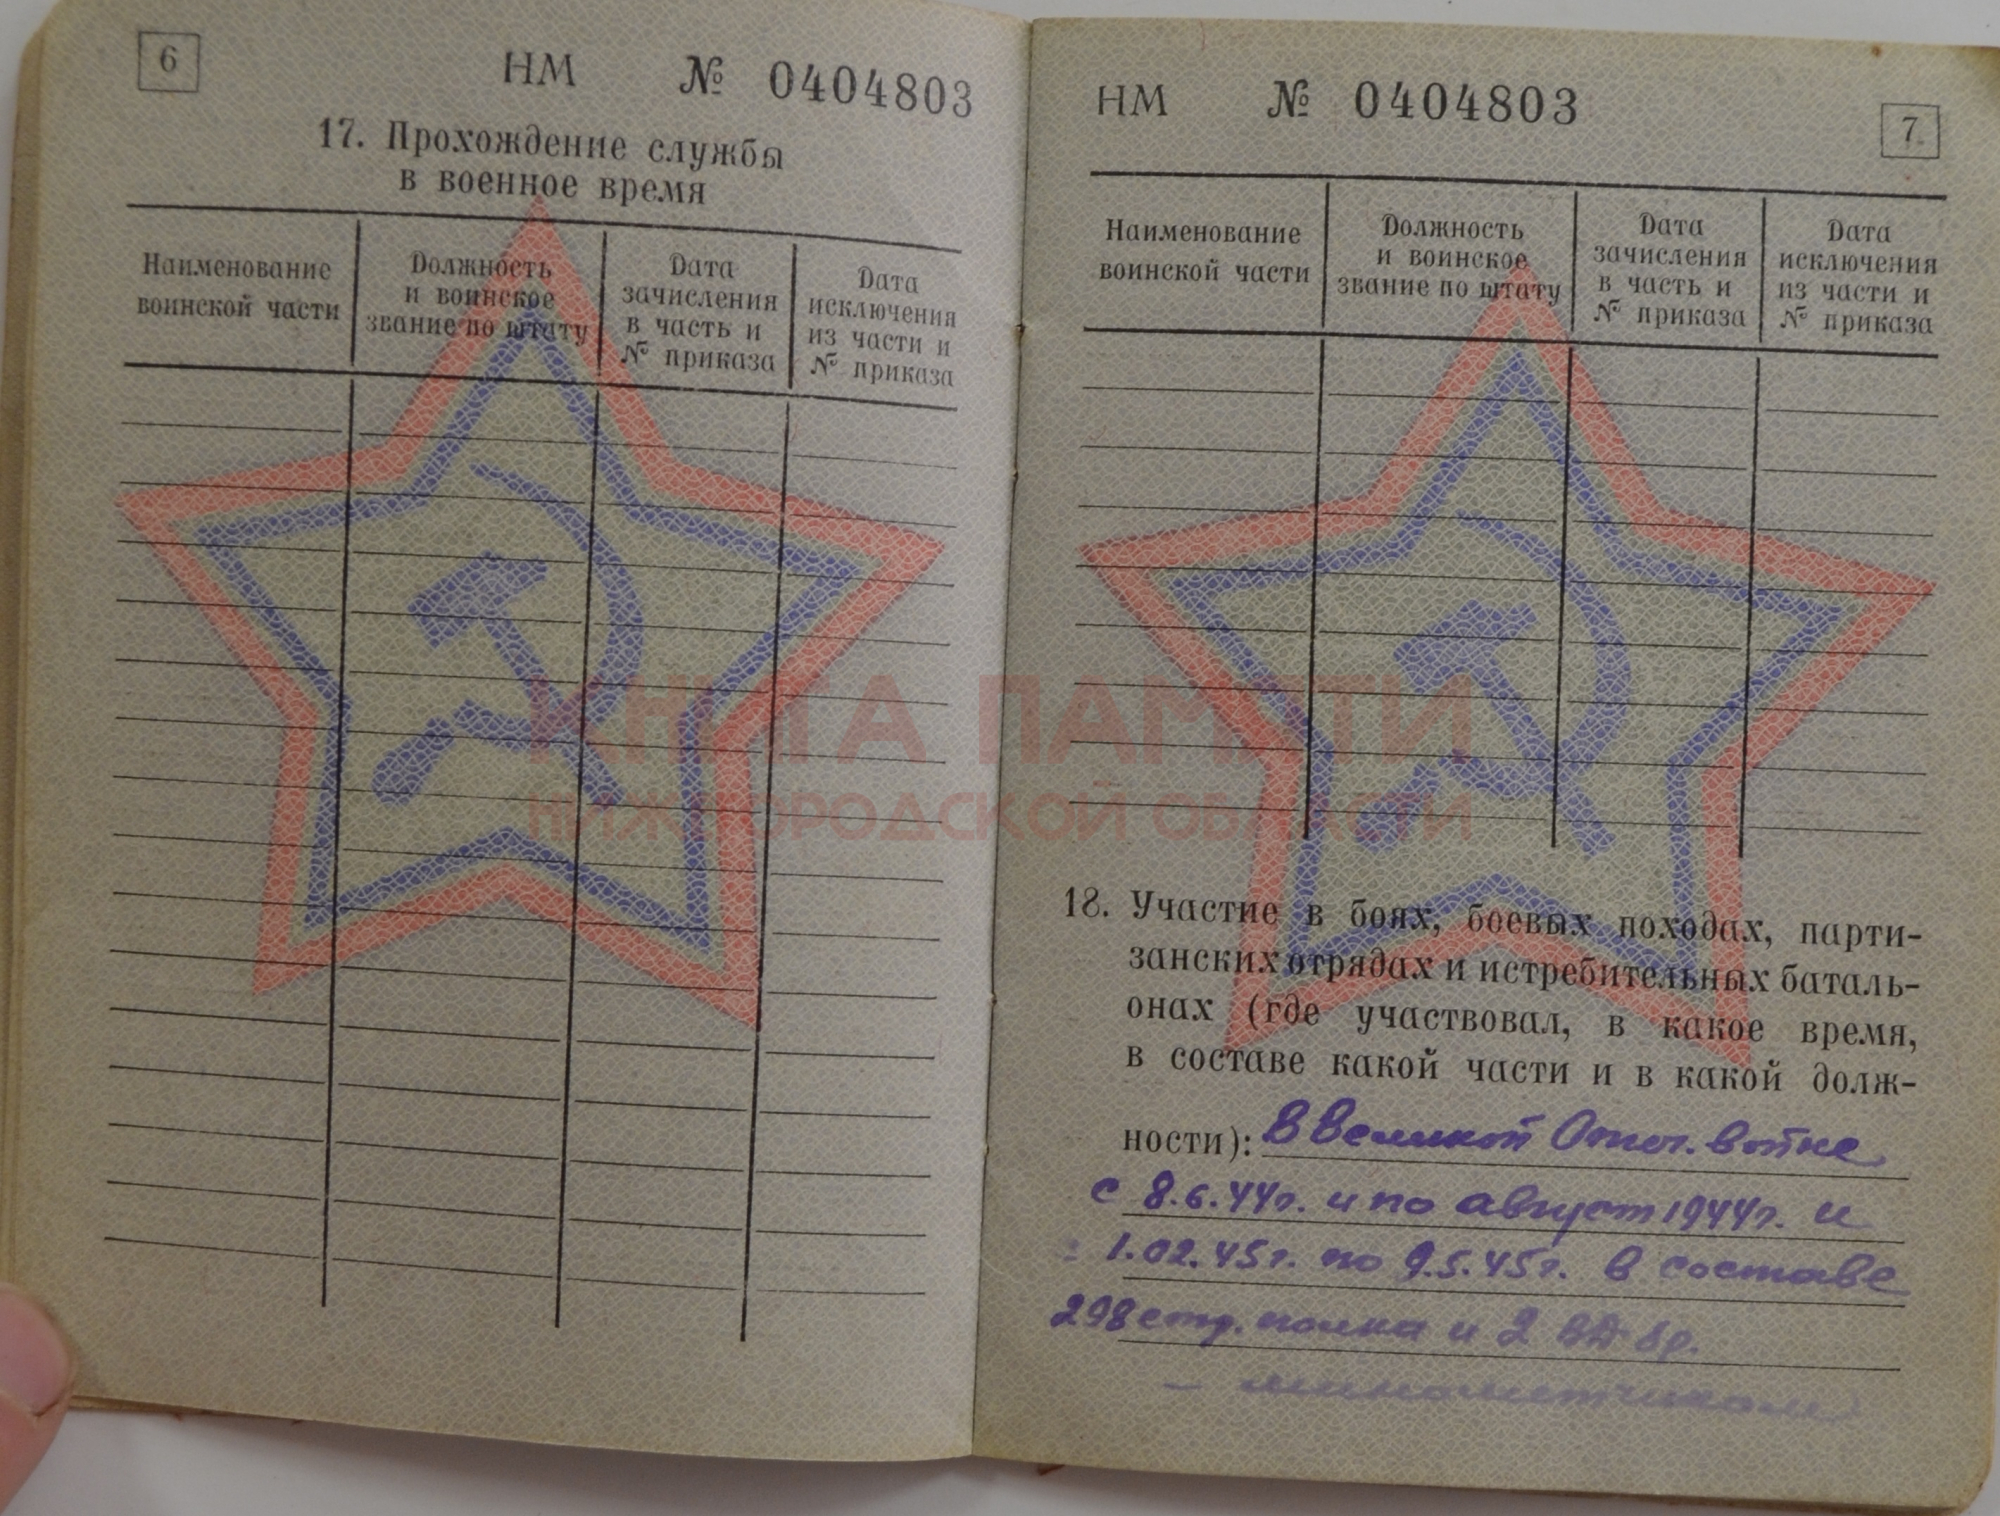 6
НМ № 0404803
17. Прохождение службы
в военное время
Наименование
воинской части
Должность
и воинское
звание по штату
Дата
зачисления
в часть и
№ приказа
Дата
исключения
из части и
№ приказа
НМ № 0404803
7
Наименование
воинской части
Должность
и воинское
звание по штату
Дата
зачисления
в часть и
№ приказа
Дата
исключения
из части и
№ приказа
КНИГА ПАМЯТИ
НИЖЕГОРОДСКОЙ ОБЛАСТИ
18. Участие в боях, боевых походах, парти-
занских отрядах и истребительных баталь-
онах (где участвовал, в какое время,
в составе какой части и в какой долж-
ности): В Великой Отеч. войне
с 8.6.44г. и по август 1944г. и
с 1.02.45г. по 9.5.45г. в составе
298 стр. полка и 2 ВД бр.
– минометчиком